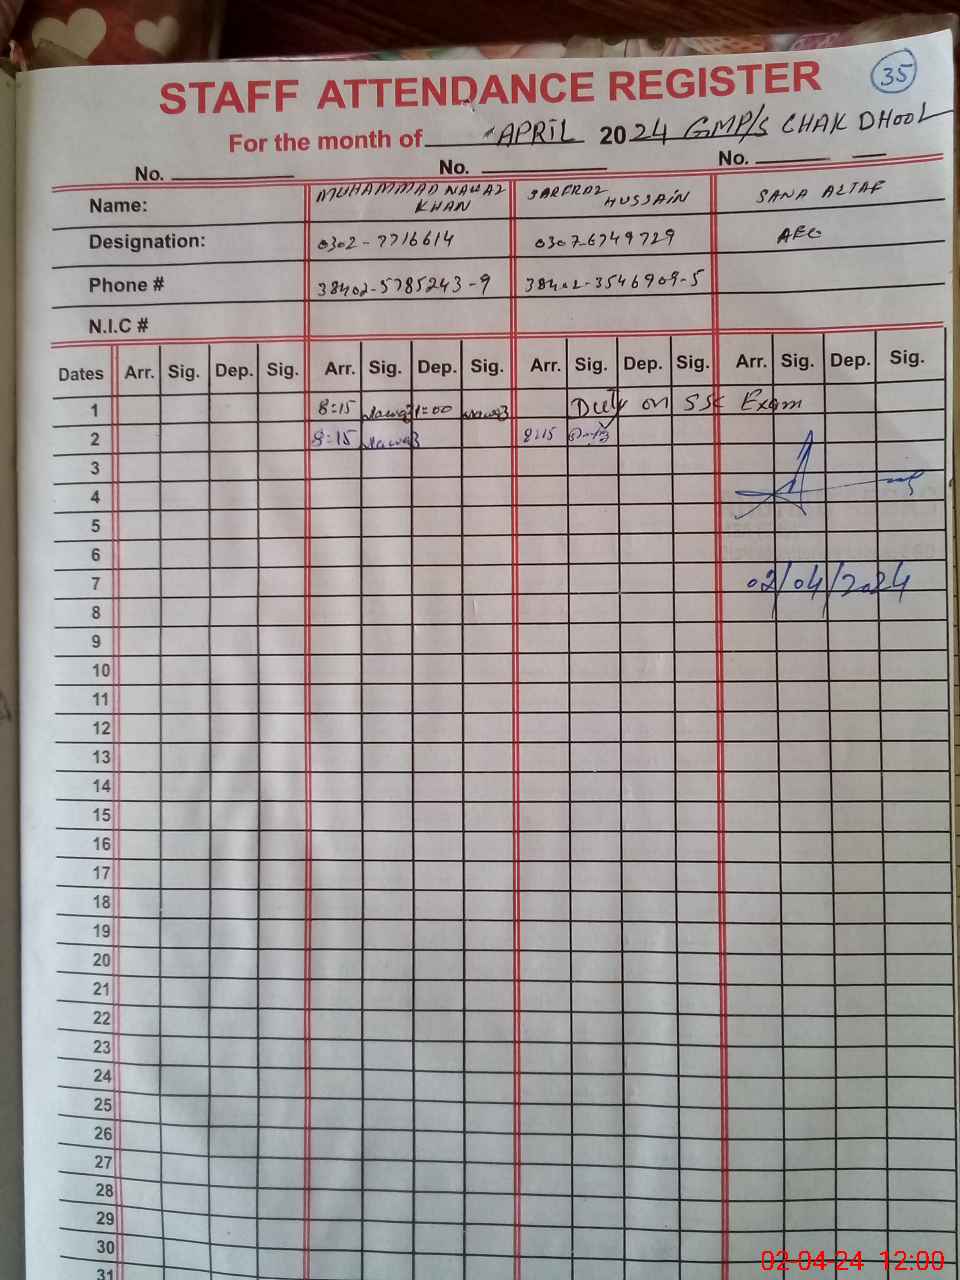 35
STAFF ATTENDANCE REGISTER
For the month of APRIL 2024 GMP/S CHAK DHOOL
No. No. No.
Name: MUHAMMAD NAWAZ KHAN SARFRAZ HUSSAIN SANA ALTAF
Designation: 0302-7716614 0307-6749729 AEO
Phone # 38402-5785243-9 38402-3546909-5
N.I.C #
Dates Arr. Sig. Dep. Sig. Arr. Sig. Dep. Sig. Arr. Sig. Dep. Sig. Arr. Sig. Dep. Sig.
1 8:15 Nawaz 1:00 Nawaz Duty on SSC Exam
2 8:15 Nawaz 8:15
3
4
5
6
7 02/04/2024
8
9
10
11
12
13
14
15
16
17
18
19
20
21
22
23
24
25
26
27
28
29
30
31
02-04-24 12:00